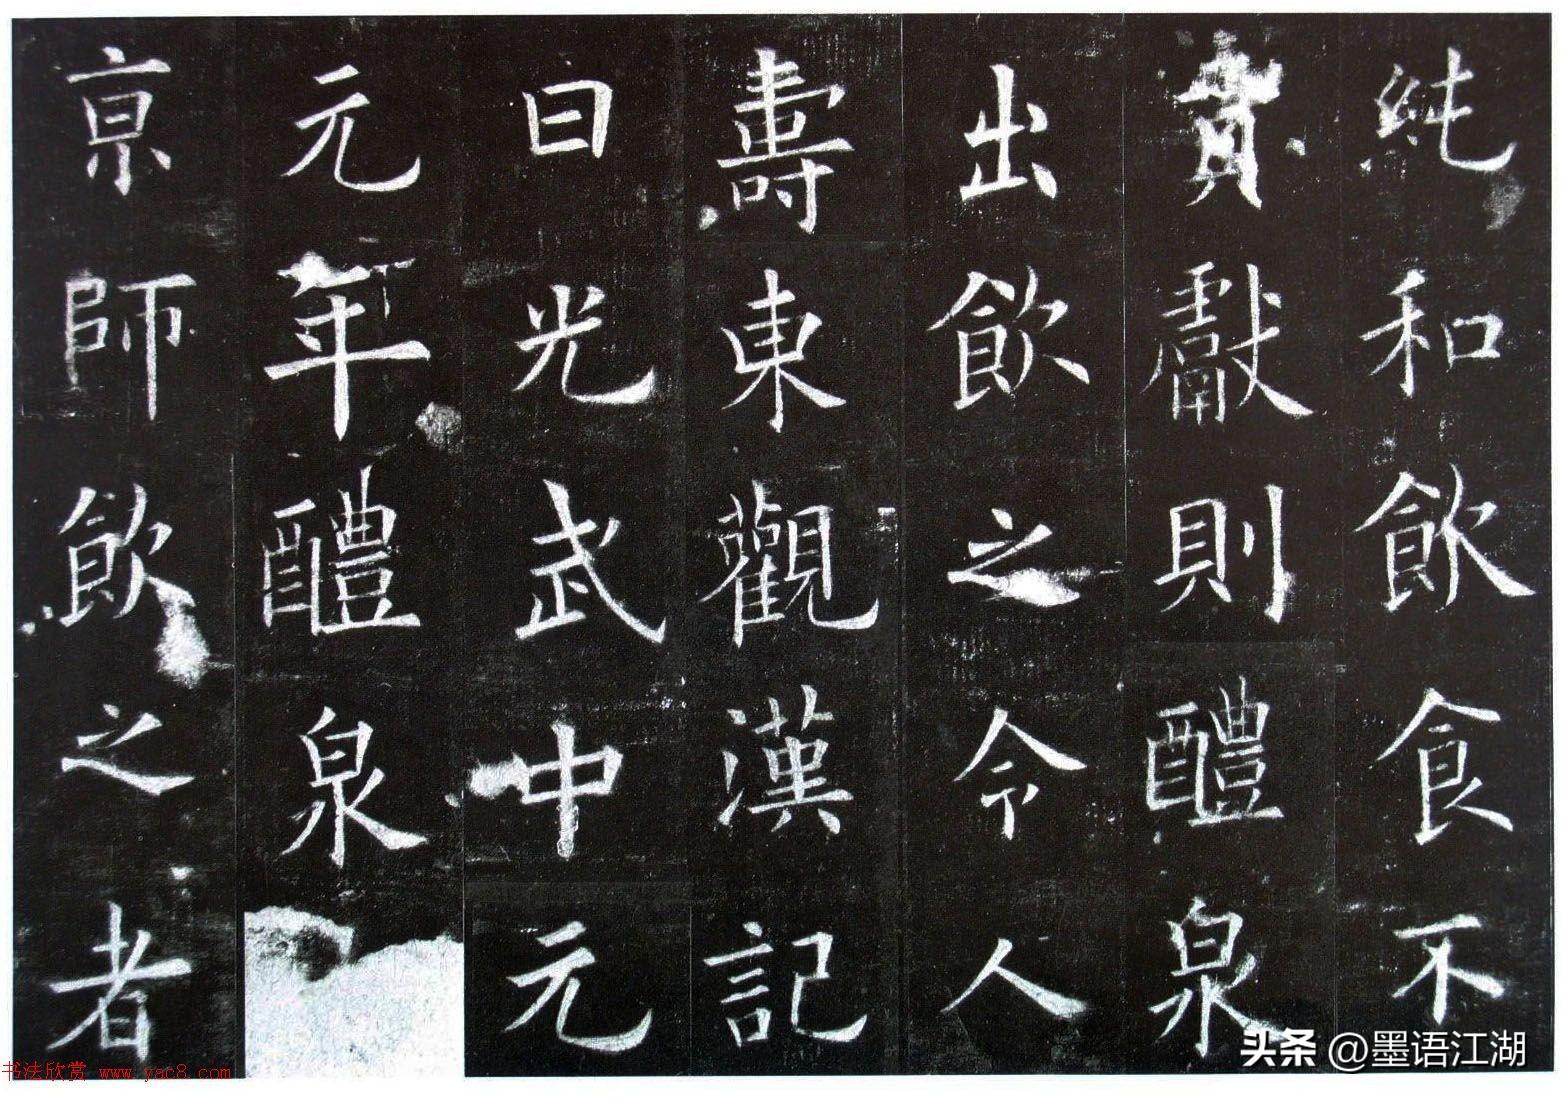 純和飲食不
貢獻則醴泉
出飲之令人
壽東觀漢記
曰光武中元
元年醴泉
京師飲之者
头条 @墨语江湖
书法欣赏 www.yac8.com